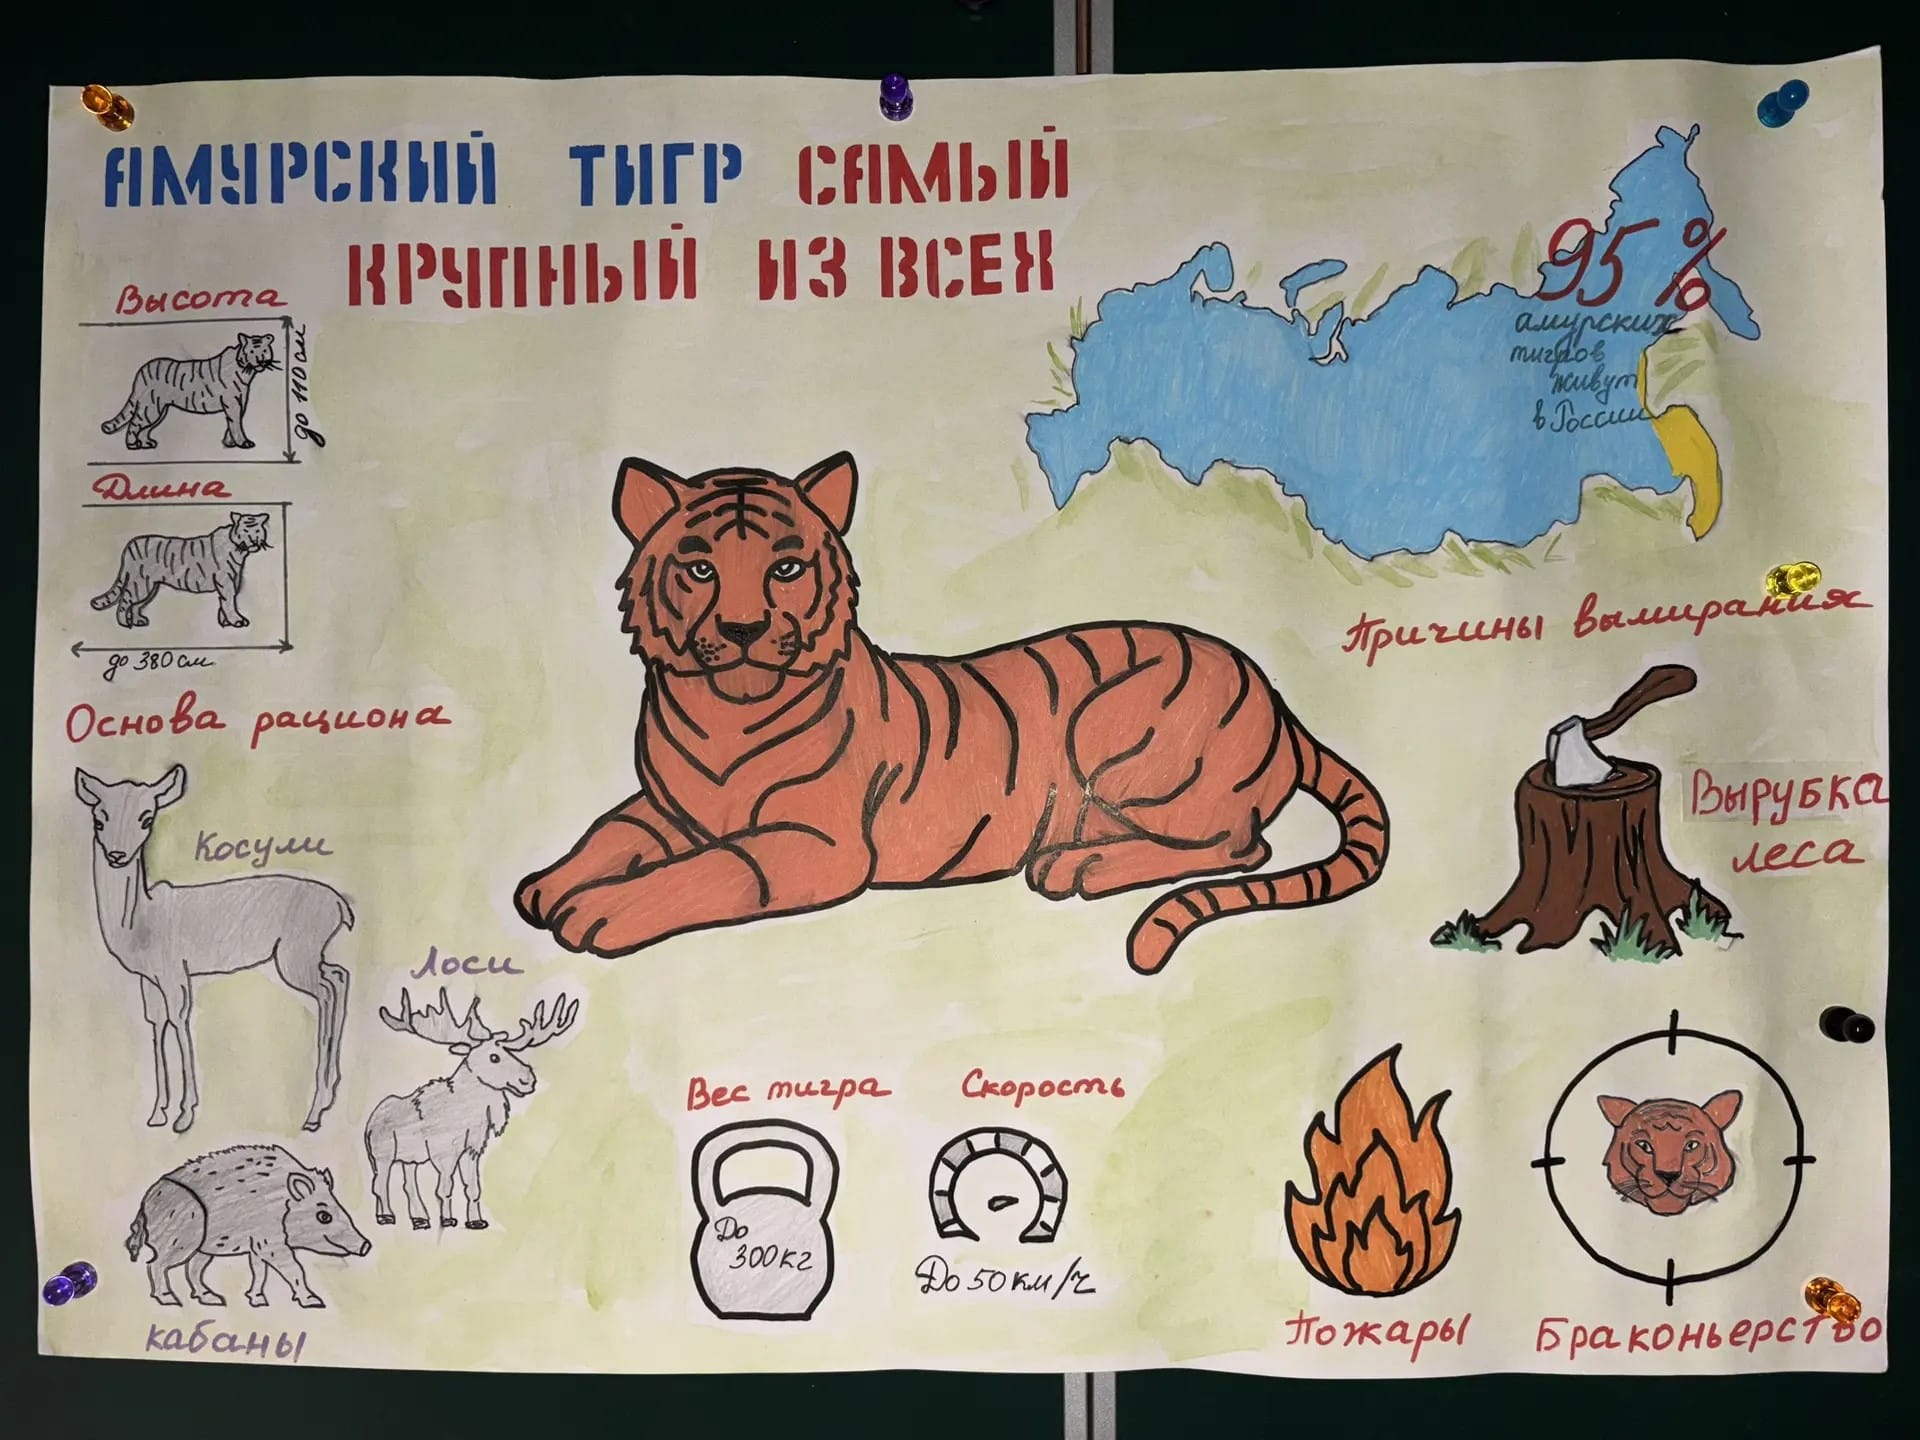 АМУРСКИЙ ТИГР САМЫЙ
КРУПНЫЙ ИЗ ВСЕХ
Высота
до 110 см
Длина
до 380 см
Основа рациона
Косули
Лоси
кабаны
Вес тигра
До
300 кг
Скорость
До 50 км/ч
95 %
амурских
тигров
живут
в России
Причины вымирания
Вырубка
леса
Пожары
Браконьерство